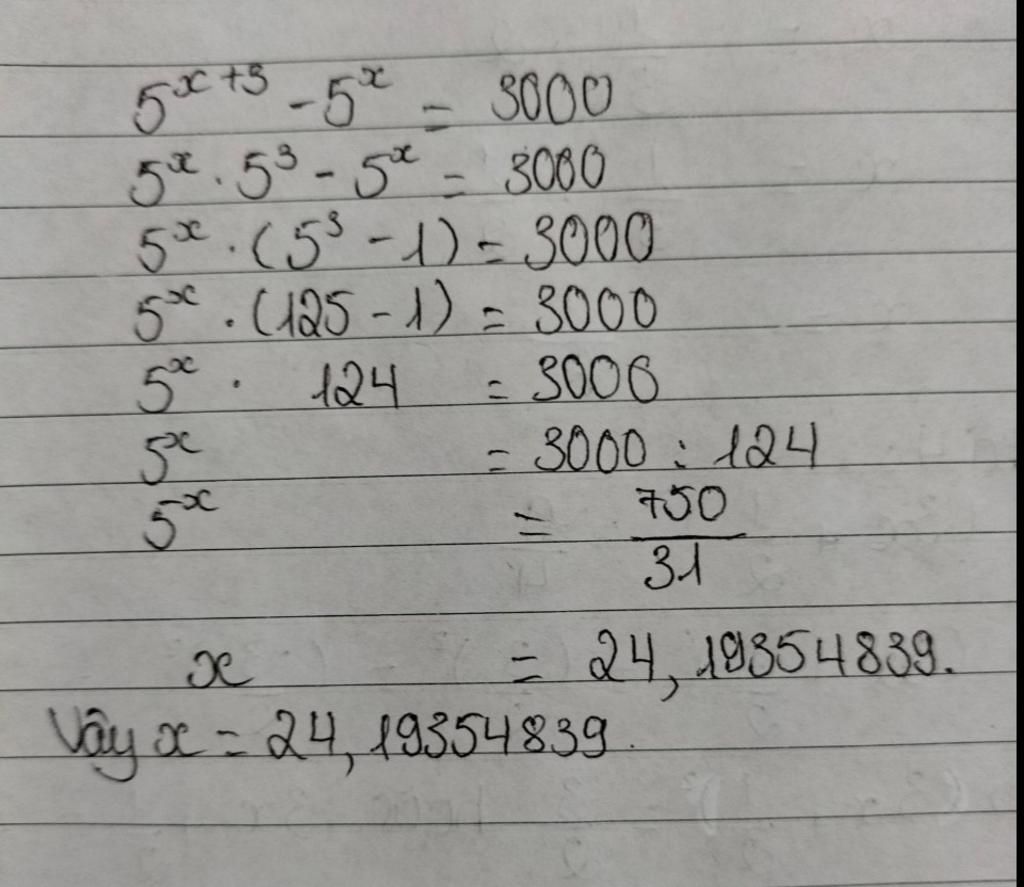 5^{x+3} - 5^x = 3000
5^x . 5^3 - 5^x = 3000
5^x . (5^3 - 1) = 3000
5^x . (125 - 1) = 3000
5^x . 124 = 3000
5^x = 3000 : 124
5^x = 750/31
x = 24,19354839.
Vậy x = 24,19354839.